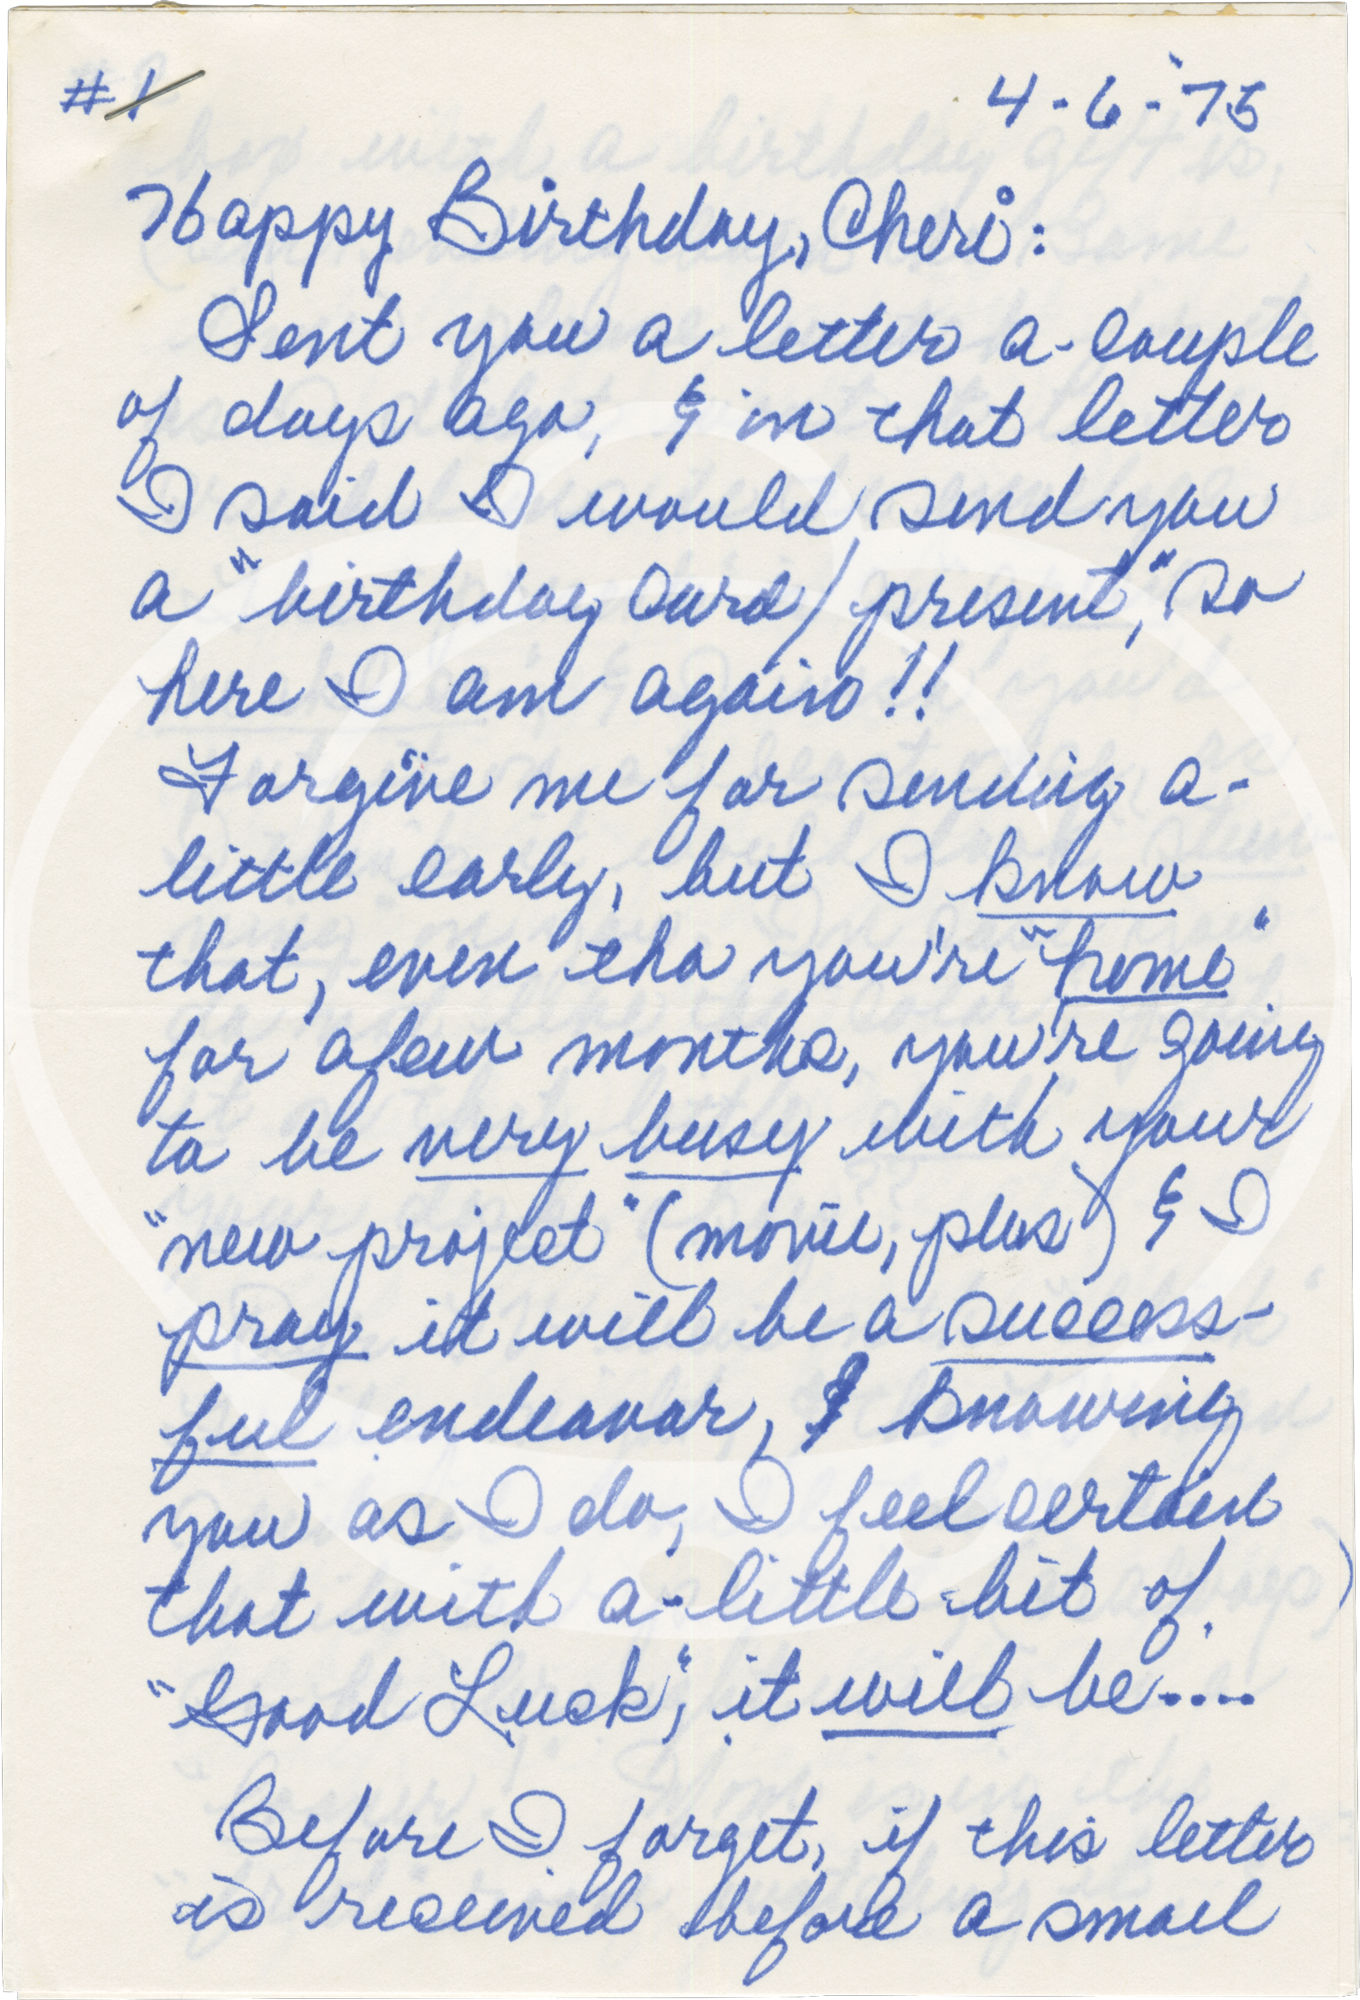 #1
4-6-'75
Happy Birthday, Cheri:
Sent you a letter a-couple
of days ago, & in that letter
I said I would send you
a "birthday card/present," so
here I am again!!
Forgive me for sending a-
little early, but I know
that, even tho you're "home"
for afew months, you're going
to be very busy with your
"new project" (movie, plus) & I
pray it will be a success-
ful endeavor, & knowing
you as I do, I feel certain
that with a-little-bit of
"Good Luck", it will be....
Before I forget, if this letter
is received before a small